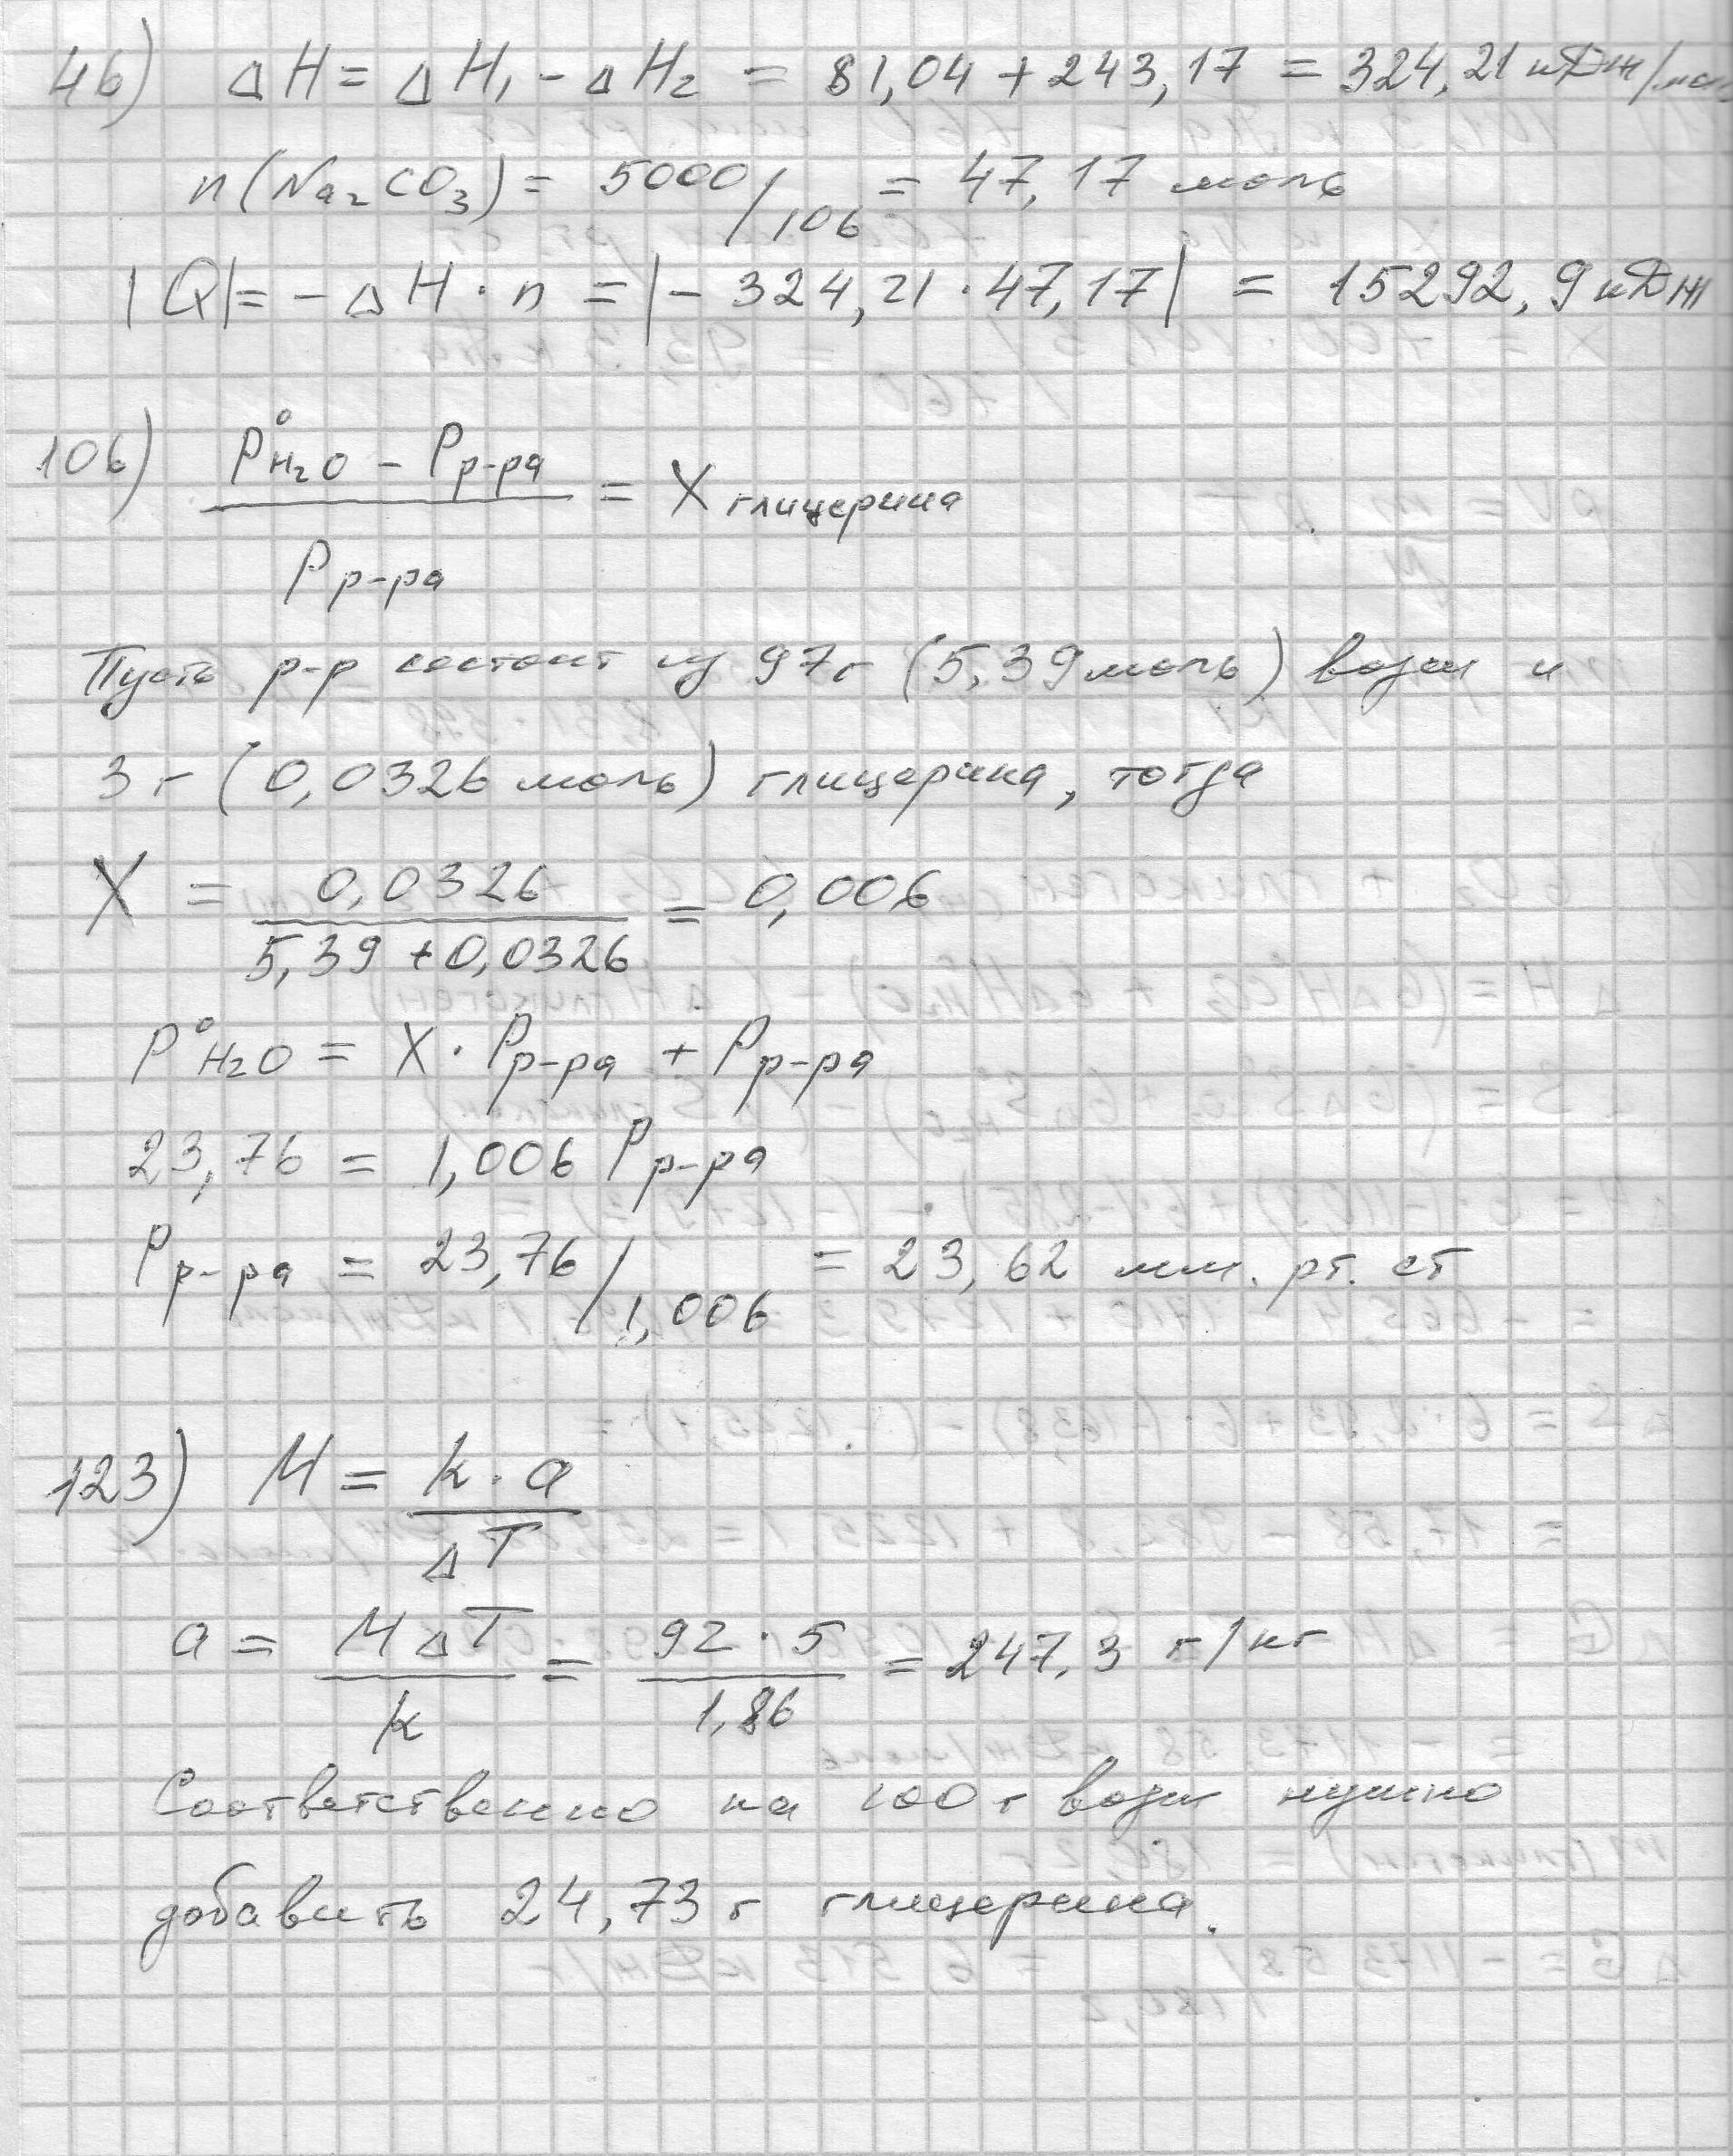 46) ΔH = ΔH₁ - ΔH₂ = 81,04 + 243,17 = 324,21 кДж/моль
n(Na₂CO₃) = 5000/106 = 47,17 моль
|Q| = -ΔH · n = |- 324,21 · 47,17| = 15292,9 кДж
106) P°H₂O - Pр-ра / Pр-ра = X глицерина
Пусть р-р состоит из 97г (5,39 моль) воды и
3 г (0,0326 моль) глицерина, тогда
X = 0,0326 / 5,39 + 0,0326 = 0,006
P°H₂O = X · Pр-ра + Pр-ра
23,76 = 1,006 Pр-ра
Pр-ра = 23,76/1,006 = 23,62 мм. рт. ст
123) M = k · a / ΔT
a = MΔT / k = 92 · 5 / 1,86 = 247,3 г/кг
Соответственно на 100 г воды нужно
добавить 24,73 г глицерина.